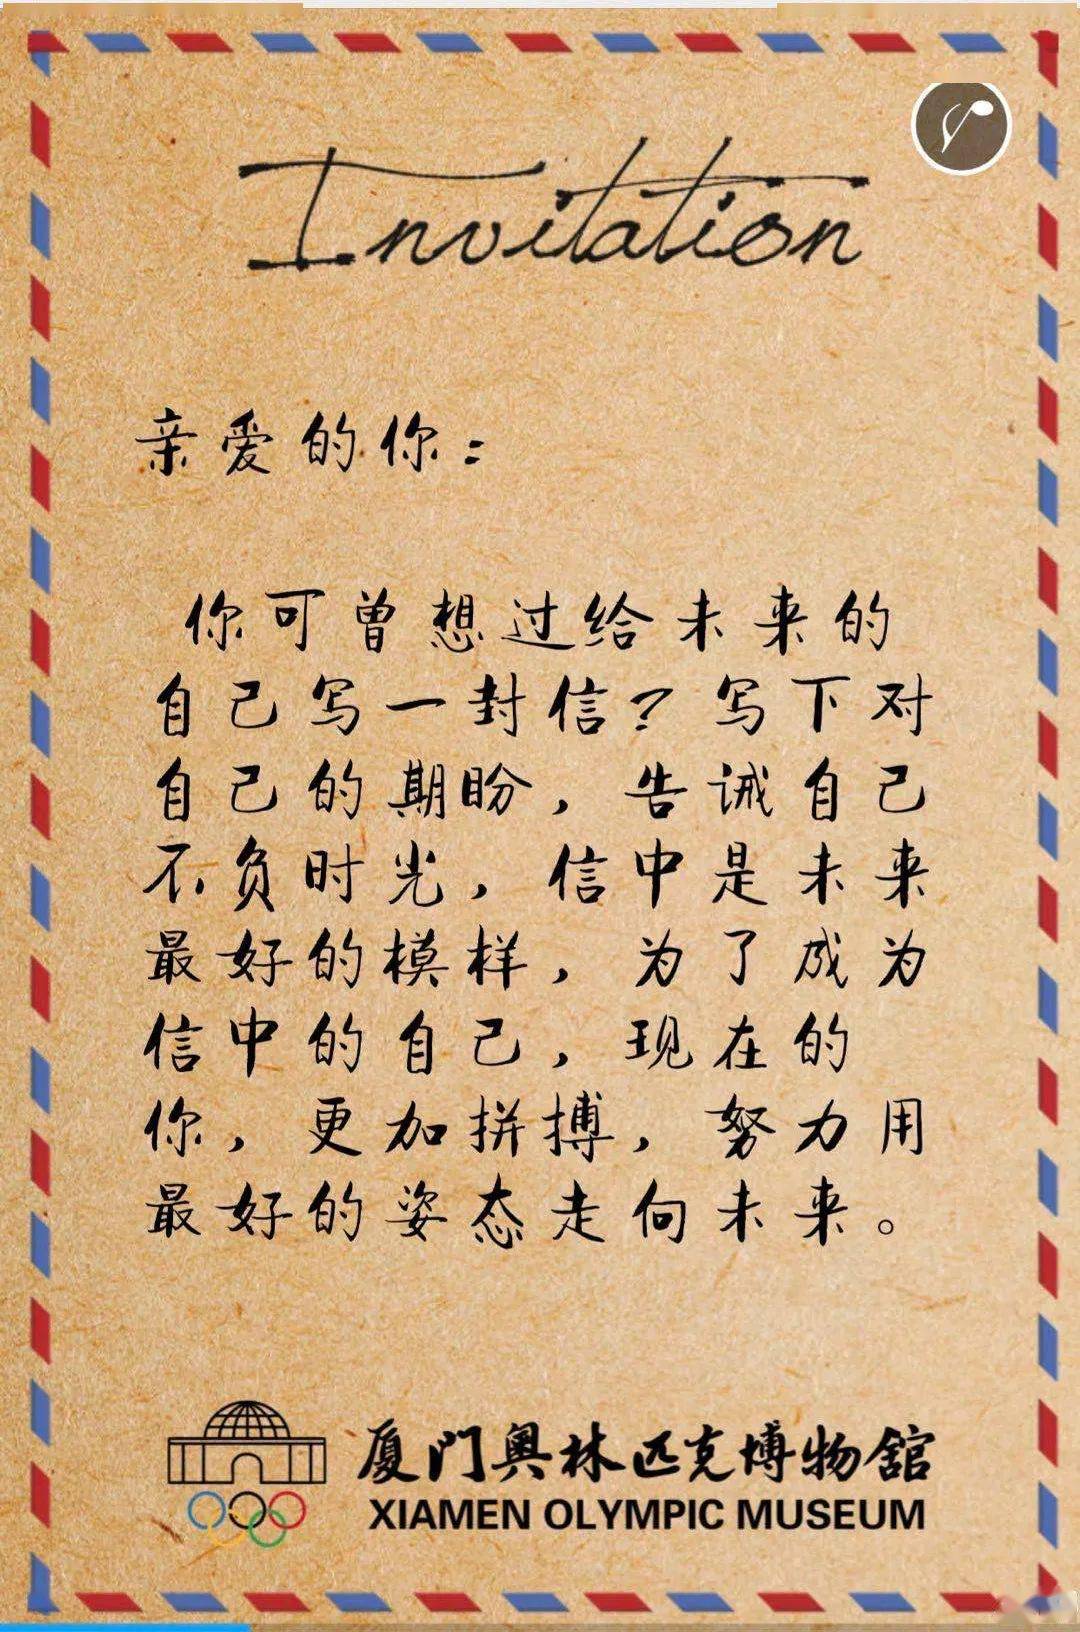 Invitation
亲爱的你：
你可曾想过给未来的
自己写一封信？写下对
自己的期盼，告诫自己
不负时光，信中是未来
最好的模样，为了成为
信中的自己，现在的
你，更加拼搏，努力用
最好的姿态走向未来。
厦门奥林匹克博物館
XIAMEN OLYMPIC MUSEUM